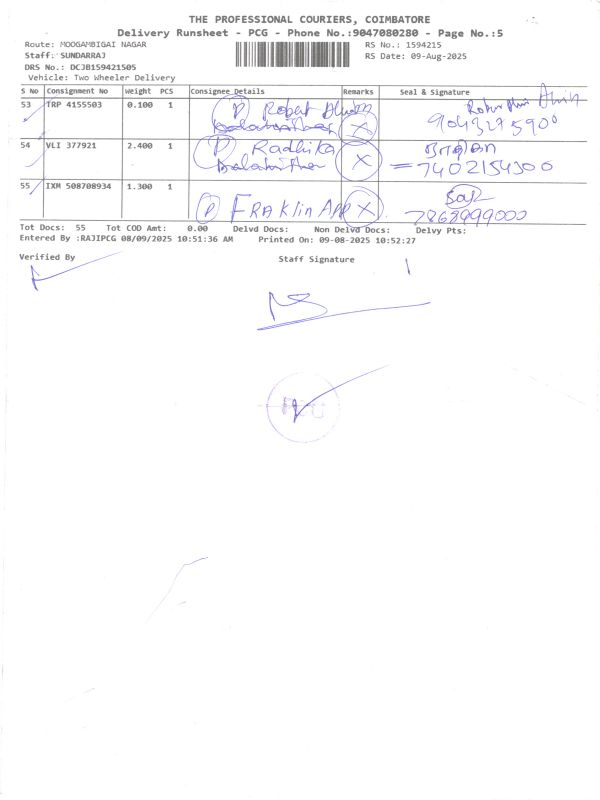 THE PROFESSIONAL COURIERS, COIMBATORE
Delivery Runsheet - PCG - Phone No.:9047080280 - Page No.:5
Route: MOOGAMBIGAI NAGAR
RS No.: 1594215
Staff: SUNDARRAJ
RS Date: 09-Aug-2025
DRS No.: DCJB159421505
Vehicle: Two Wheeler Delivery
S No Consignment No Weight PCS Consignee Details Remarks Seal & Signature
53 TRP 4155503 0.100 1 P Robert X
9043275900
54 VLI 377921 2.400 1 P Radhika X
= 7402154300
55 IXM 508708934 1.300 1 P FRAKlin APP X
7868999000
Tot Docs: 55 Tot COD Amt: 0.00 Delvd Docs: Non Delvd Docs: Delvy Pts:
Entered By :RAJIPCG 08/09/2025 10:51:36 AM Printed On: 09-08-2025 10:52:27
Verified By Staff Signature